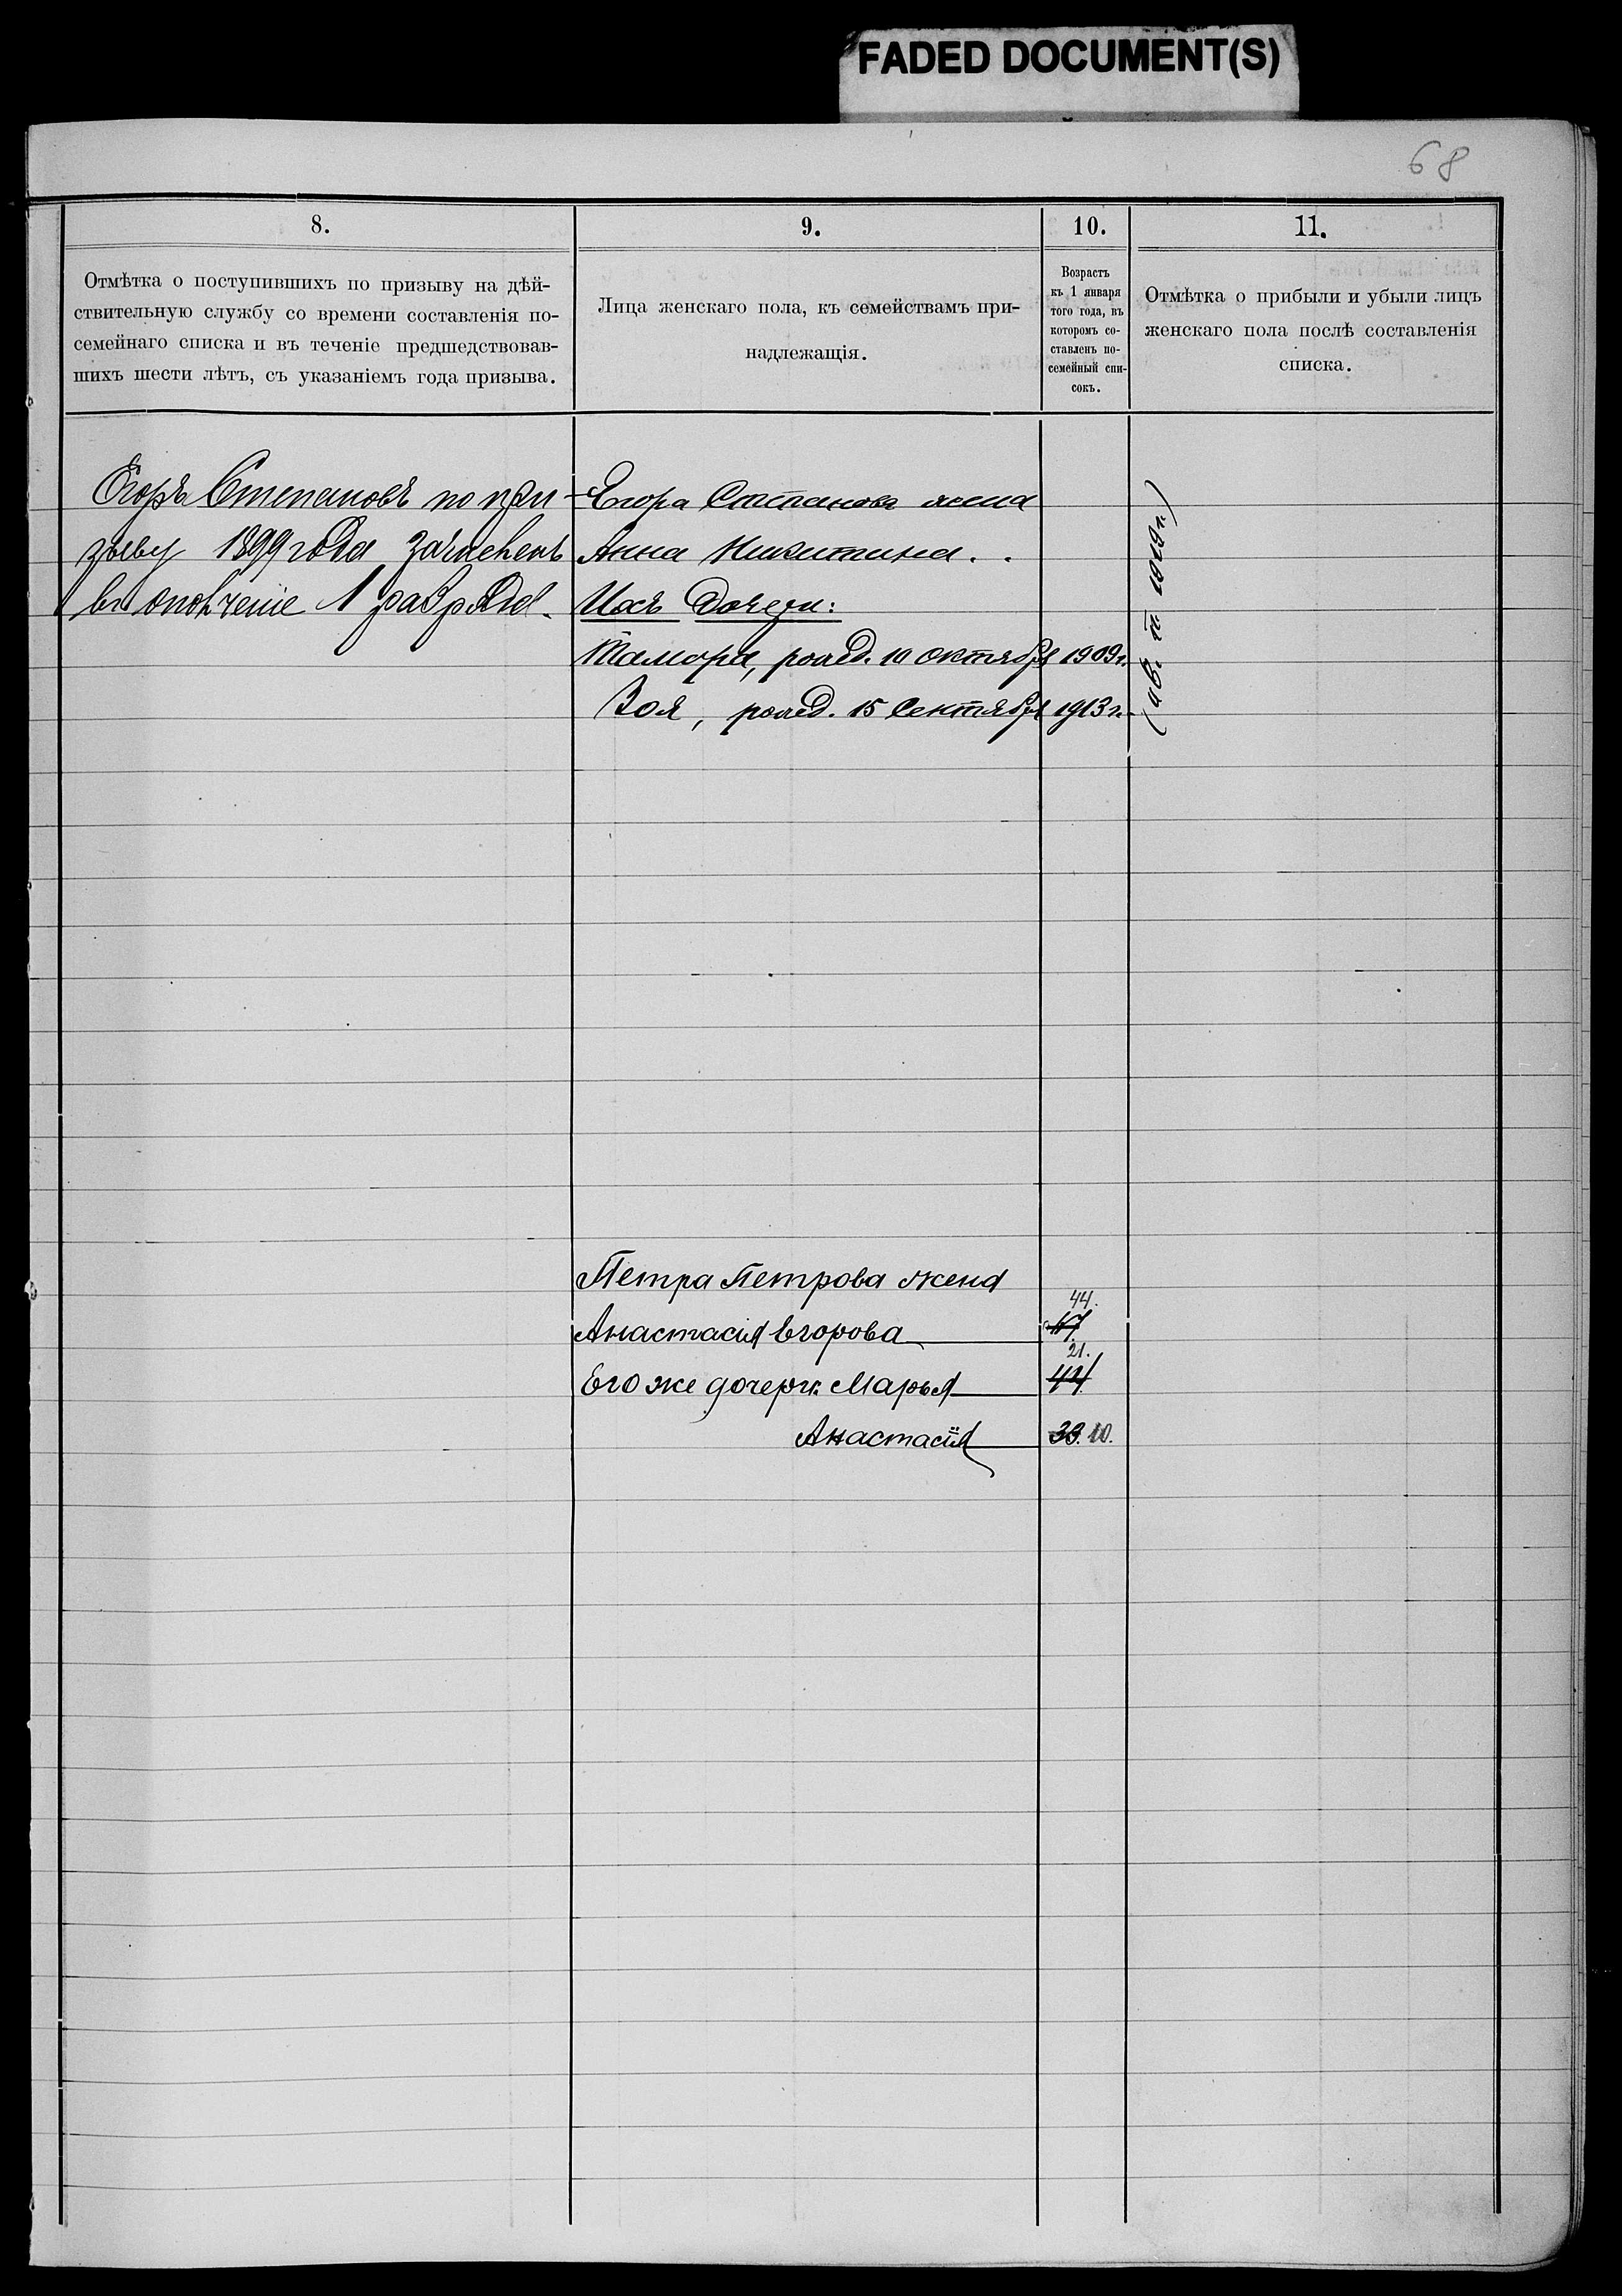 FADED DOCUMENT(S)
68
8.
Отмѣтка о поступившихъ по призыву на дѣй-
ствительную службу со времени составленія по-
семейнаго списка и въ теченіе предшедствовав-
шихъ шести лѣтъ, съ указаніемъ года призыва.
9.
Лица женскаго пола, къ семействамъ при-
надлежащія.
10.
Возрастъ
къ 1 января
того года, въ
которомъ со-
ставленъ по-
семейный спи-
сокъ.
11.
Отмѣтка о прибыли и убыли лицъ
женскаго пола послѣ составленія
списка.
Егоръ Степановъ по при-
зыву 1899 года зачисленъ
въ ополченіе 1 разряда.
Егора Степанова жена
Анна Никитина.
Ихъ дочери:
Тамара, рожд. 10 октября 1909 г.
Зоя, рожд. 15 Сентября 1913 г.
1919 г.)
Петра Петрова жена
Анастасія Егорова
44.
Его же дочери: Марья
21.
44
Анастасія 33. 10.